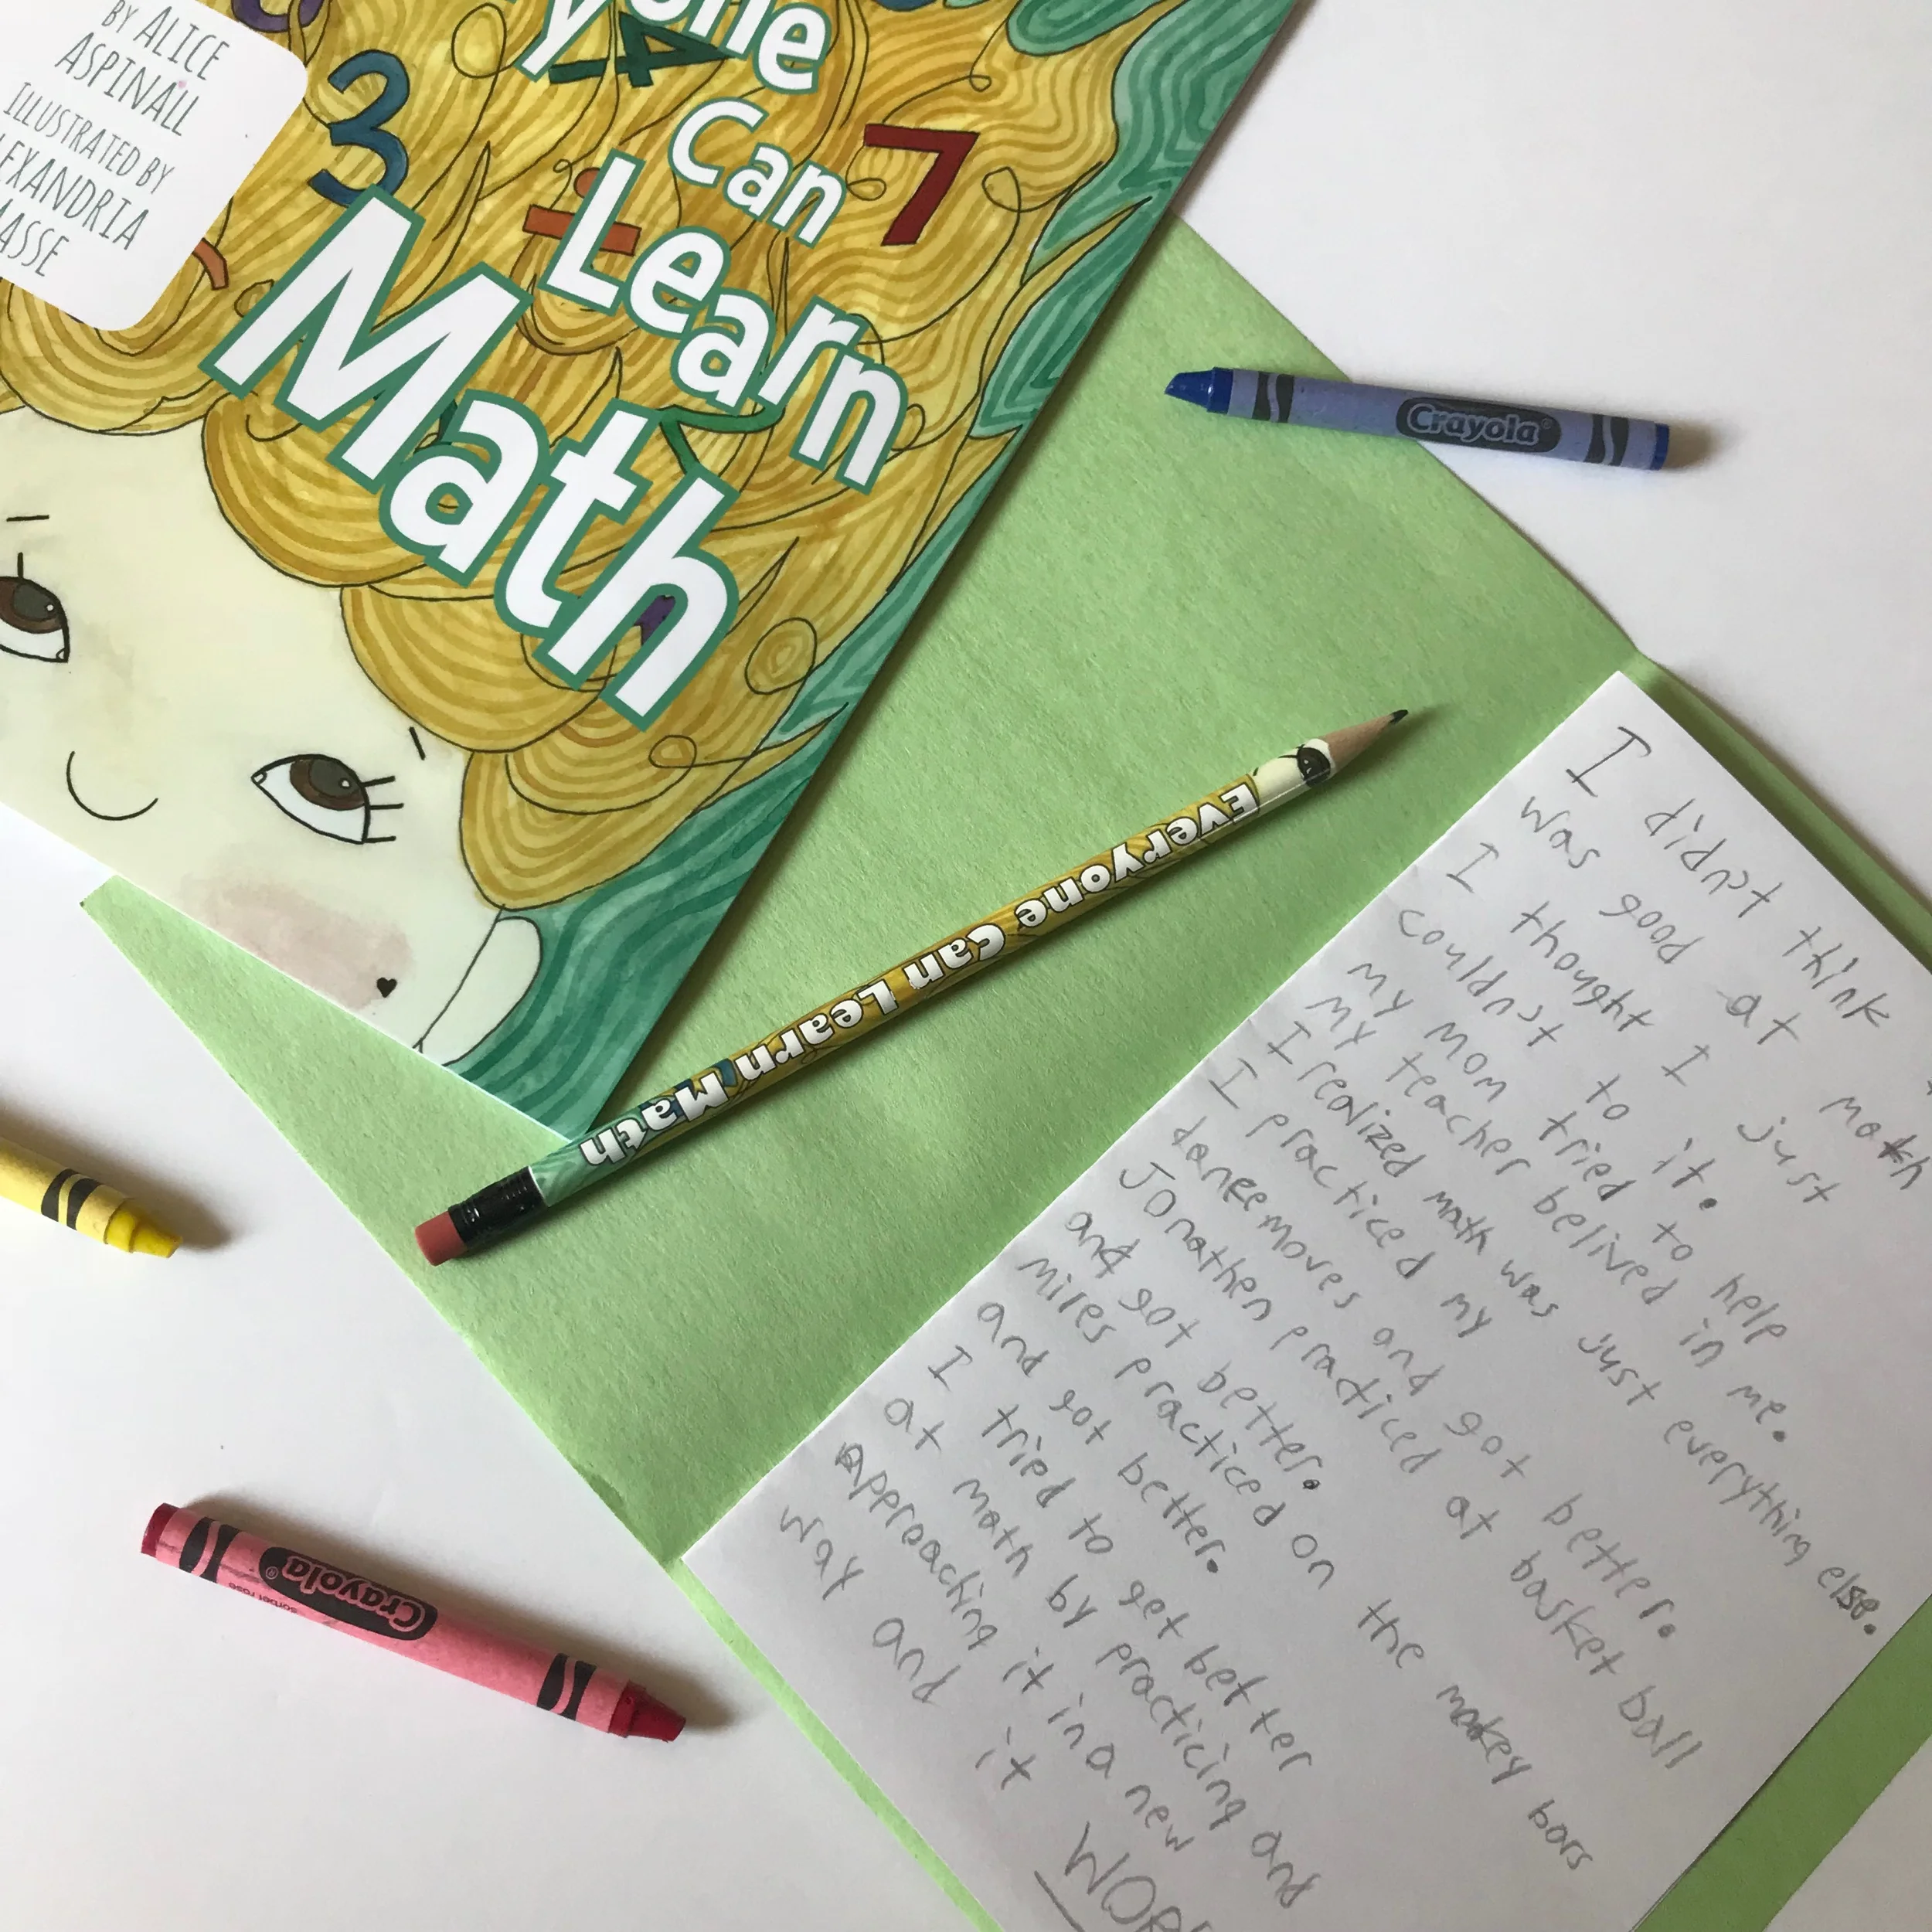 BY ALICE
ASPINALL
ILLUSTRATED BY
LEXANDRIA
MASSE
yone
Can
Learn
Math
3
4
7
÷
Crayola
Everyone Can Learn Math
Crayola
sorbet rose
I didn't think I
was good at math
I thought I just
couldn't to it.
my mom tried to help
my teacher belived in me.
I realized math was just everything else.
I practiced my
dance moves and got better.
Jonathen practiced at basket ball
and got better.
miles practiced on the mokey bars
and got better.
I tried to get better
at math by practicing and
approaching it in a new
way and it WOR